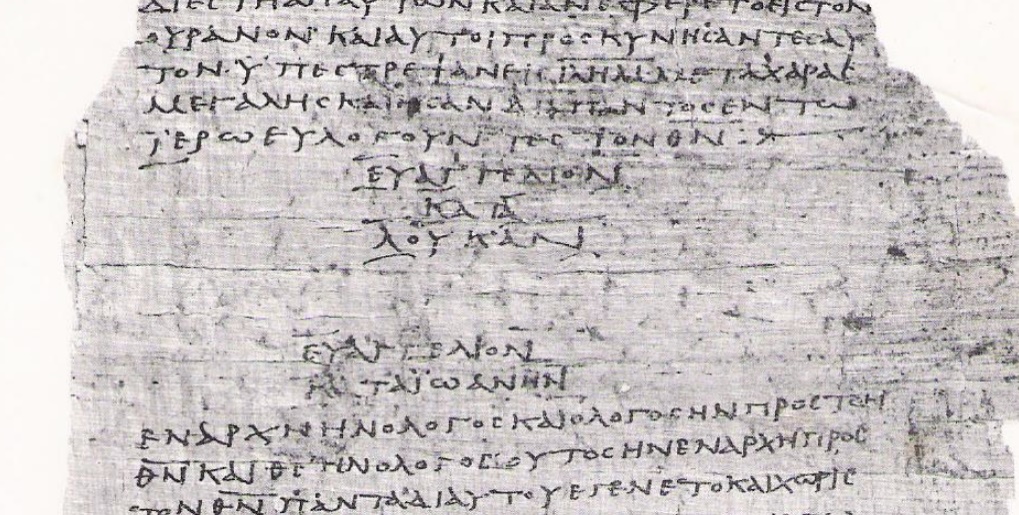 ΔΙΕΣΤΗ ΑΠ ΑΥΤΩΝ ΚΑΙ ΑΝΕΦΕΡΕΤΟ ΕΙΣ ΤΟΝ
ΟΥΡΑΝΟΝ ΚΑΙ ΑΥΤΟΙ ΠΡΟΣΚΥΝΗΣΑΝΤΕΣ ΑΥ
ΤΟΝ ΥΠΕΣΤΡΕΨΑΝ ΕΙΣ ΙΛΗΜ ΜΕΤΑ ΧΑΡΑΣ
ΜΕΓΑΛΗΣ ΚΑΙ ΗΣΑΝ ΔΙΑ ΠΑΝΤΟΣ ΕΝ ΤΩ
ΙΕΡΩ ΕΥΛΟΓΟΥΝΤΕΣ ΤΟΝ ΘΝ
ΕΥΑΓΓΕΛΙΟΝ
ΚΑΤΑ
ΛΟΥΚΑΝ
ΕΥΑΓΓΕΛΙΟΝ
ΚΑΤΑ ΙΩΑΝΗΝ
ΕΝ ΑΡΧΗ ΗΝ Ο ΛΟΓΟΣ ΚΑΙ Ο ΛΟΓΟΣ ΗΝ ΠΡΟΣ ΤΟΝ
ΘΝ ΚΑΙ ΘΣ ΗΝ Ο ΛΟΓΟΣ ΟΥΤΟΣ ΗΝ ΕΝ ΑΡΧΗ ΠΡΟΣ
ΤΟΝ ΘΝ ΠΑΝΤΑ ΔΙ ΑΥΤΟΥ ΕΓΕΝΕΤΟ ΚΑΙ ΧΩΡΙΣ